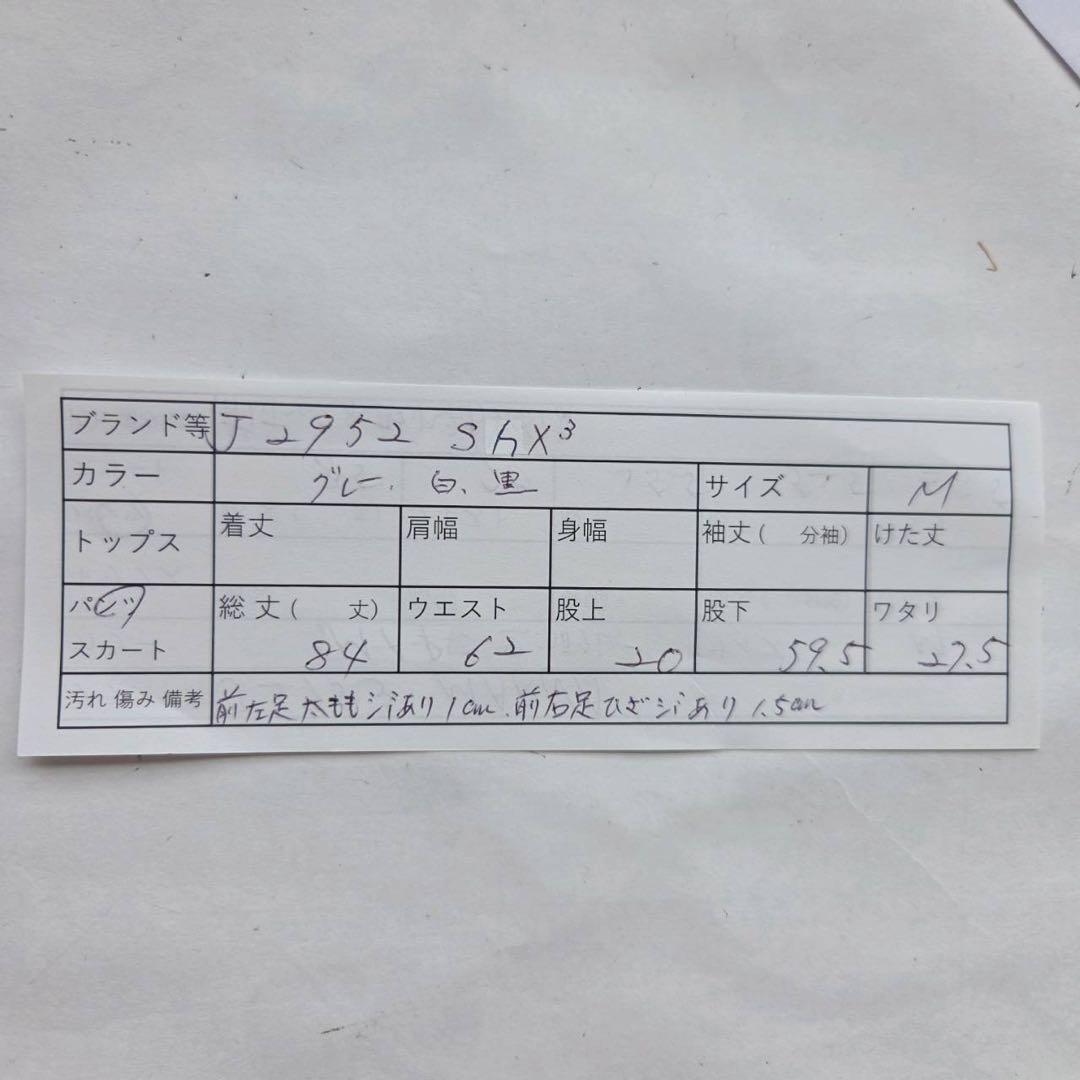 ブランド等 J2952 ShX³
カラー グレー、白、黒 サイズ M
トップス 着丈 肩幅 身幅 袖丈( 分袖) けた丈
パンツ 総丈( 丈) ウエスト 股上 股下 ワタリ
スカート 84 62 20 59.5 27.5
汚れ 傷み 備考 前左足太ももシミあり1cm、前右足ひざシミあり1.5cm